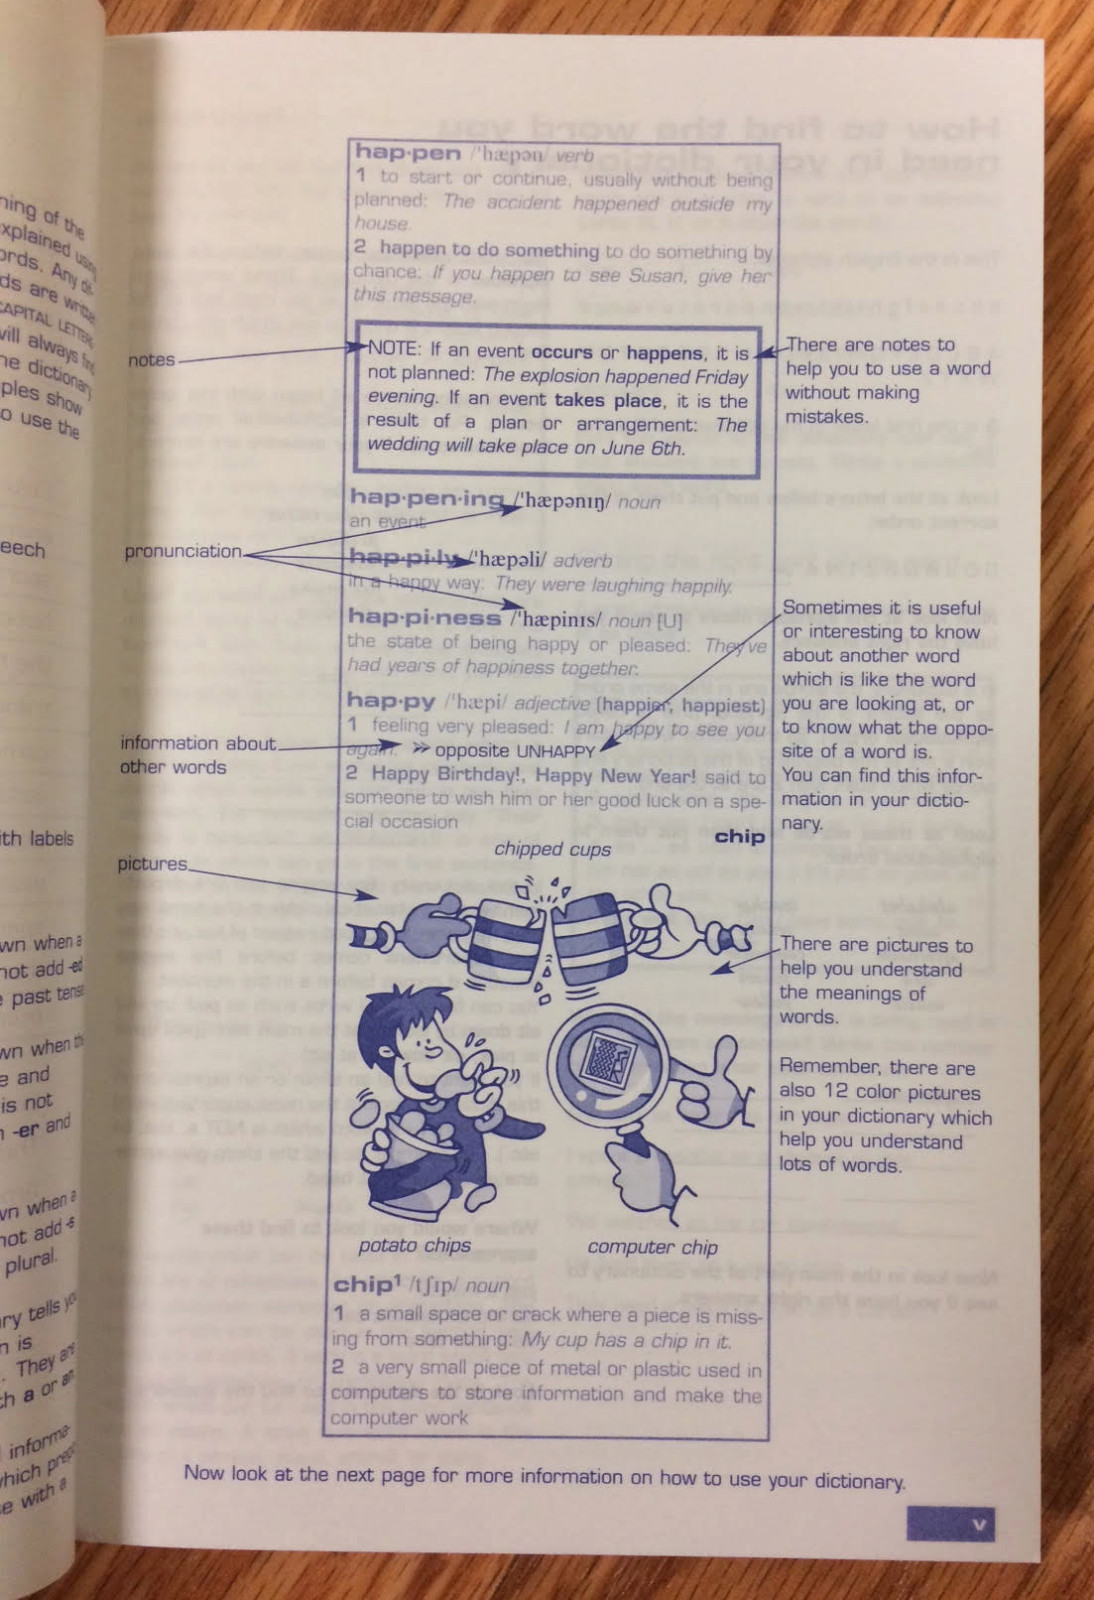 ning of the
xplained using
ords. Any
ds are written
CAPITAL LETTERS
will always find
he dictionary
ples show
o use the
eech
ith labels
wn when a
not add -ed
e past tense
wn when the
e and
is not
n -er and
wn when a
not add -s
plural.
ary tells you
n is
. They are
th a or an
informa-
which prep
se with a
hap·pen /ˈhæpən/ verb
1 to start or continue, usually without being
planned: The accident happened outside my
house.
2 happen to do something to do something by
chance: If you happen to see Susan, give her
this message.
notes
NOTE: If an event occurs or happens, it is
not planned: The explosion happened Friday
evening. If an event takes place, it is the
result of a plan or arrangement: The
wedding will take place on June 6th.
There are notes to
help you to use a word
without making
mistakes.
hap·pen·ing /ˈhæpənɪŋ/ noun
an event
pronunciation
hap·pi·ly /ˈhæpəli/ adverb
in a happy way: They were laughing happily.
hap·pi·ness /ˈhæpinɪs/ noun [U]
the state of being happy or pleased: They've
had years of happiness together.
hap·py /ˈhæpi/ adjective (happier, happiest)
1 feeling very pleased: I am happy to see you
again. >> opposite UNHAPPY
2 Happy Birthday!, Happy New Year! said to
someone to wish him or her good luck on a spe-
cial occasion
information about
other words
Sometimes it is useful
or interesting to know
about another word
which is like the word
you are looking at, or
to know what the oppo-
site of a word is.
You can find this infor-
mation in your dictio-
nary.
chip
chipped cups
pictures
There are pictures to
help you understand
the meanings of
words.
Remember, there are
also 12 color pictures
in your dictionary which
help you understand
lots of words.
potato chips
computer chip
chip¹ /tʃɪp/ noun
1 a small space or crack where a piece is miss-
ing from something: My cup has a chip in it.
2 a very small piece of metal or plastic used in
computers to store information and make the
computer work
Now look at the next page for more information on how to use your dictionary.
v